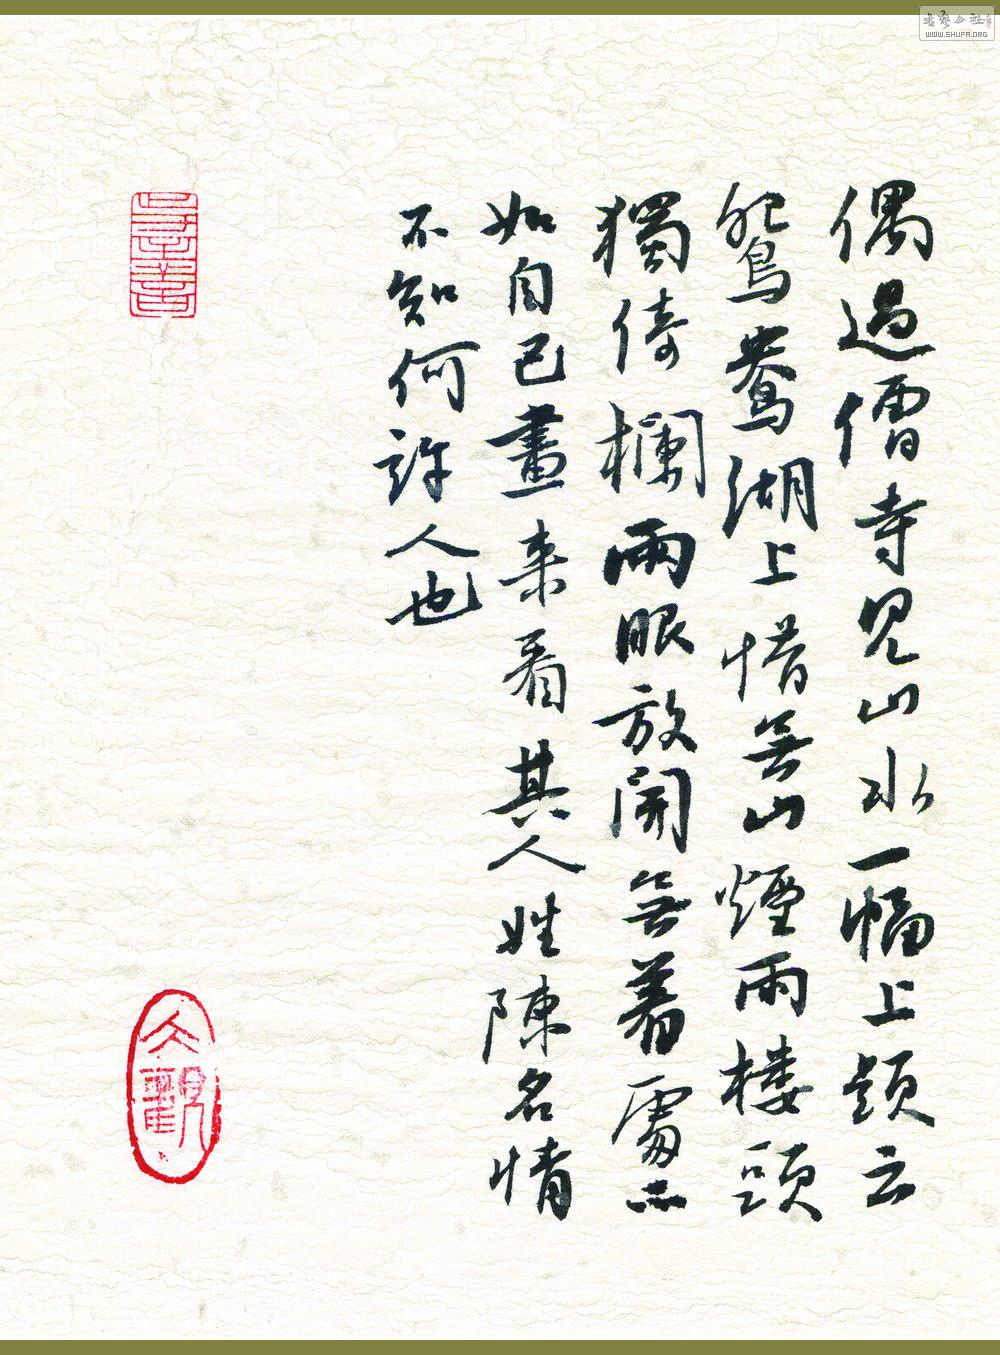 偶過僧寺見山水一幅上題云
鴛鴦湖上惜無山煙雨樓頭
獨倚欄兩眼放開無著處不
如自己畫来看其人姓陳名情
不知何許人也
書藝公社
WWW.SHUFA.ORG